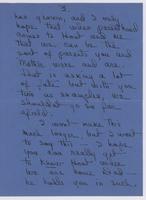 3.
has grown, and I only
hope that when parenthood
comes to Mont and me
that we can be the
sort of parents you and
Mother were and are.
That is asking a lot
of fate but with you
two as examples we
shouldn't go too far
afield.
I won't make this
much longer, but I want
to say this - I hope
you can really get
to know Mont when
we are home and
he holds you in such